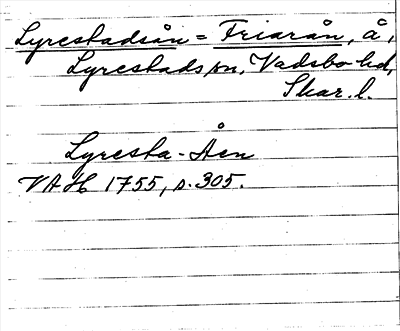 Lyrestadsån = Friarån, å,
Lyrestads sn, Vadsbo hd,
Skar. l.
Lyresta-Åen
VAH 1755, s. 305.